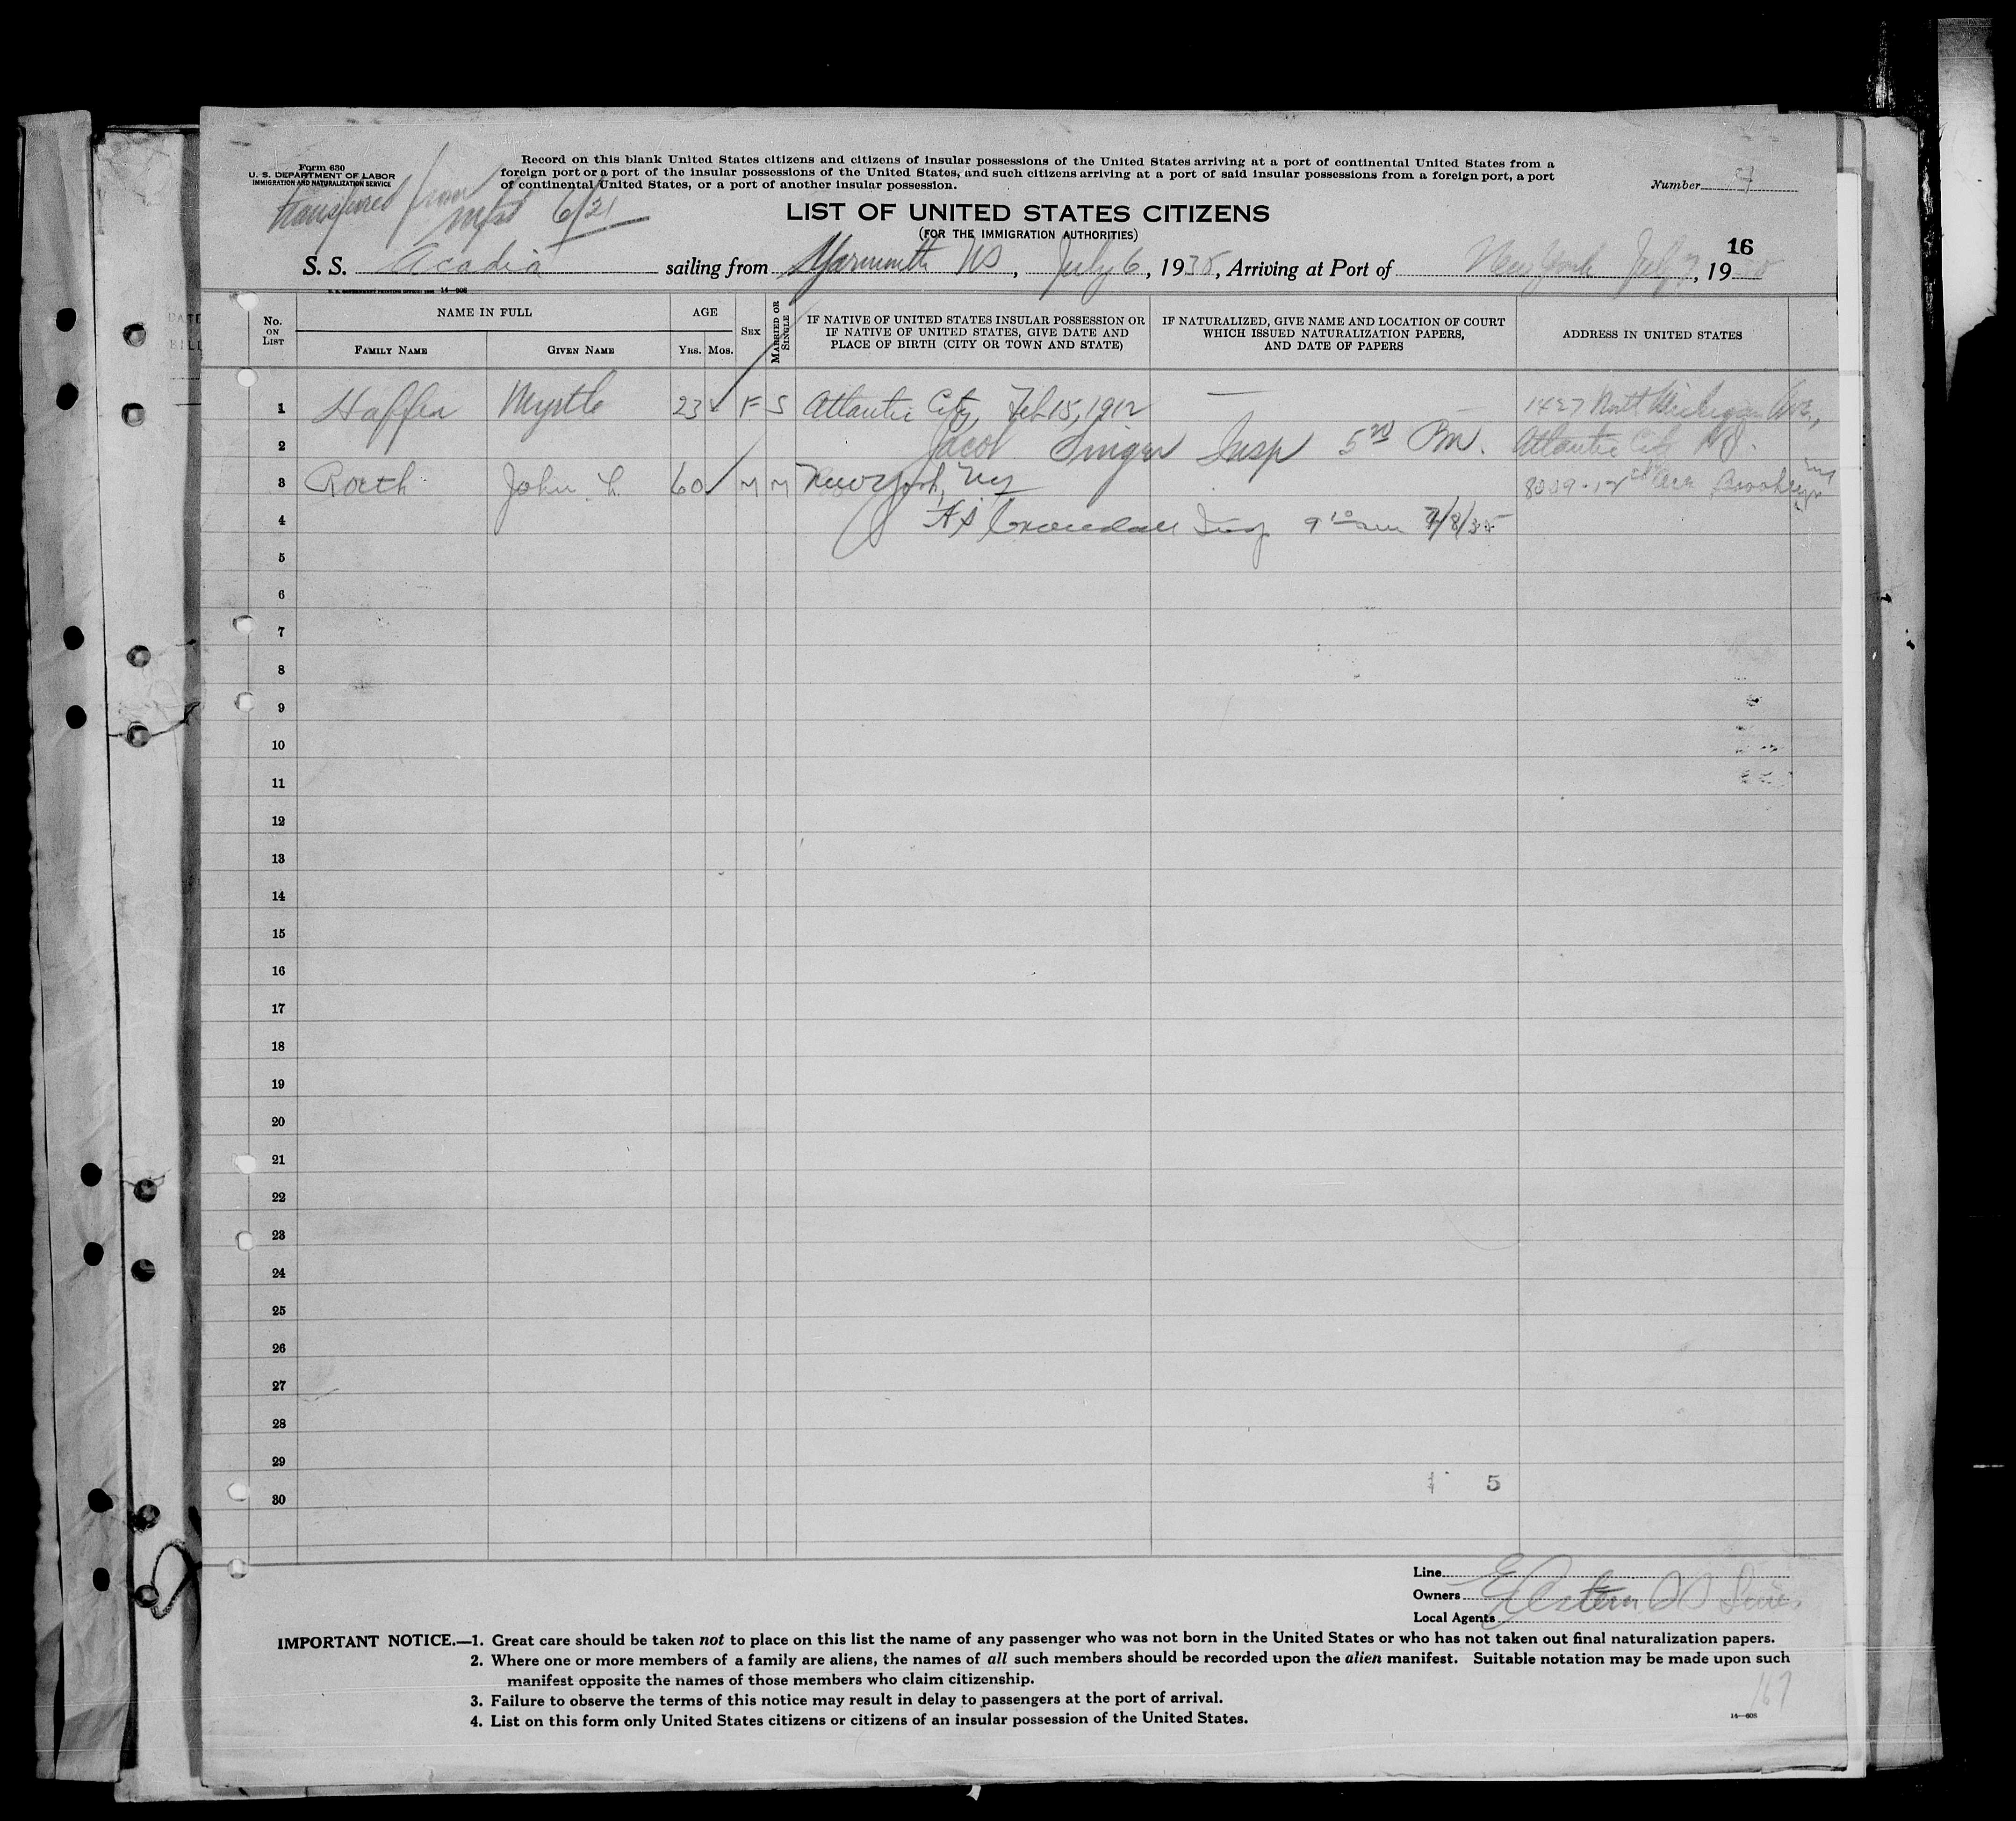 Form 630
U. S. DEPARTMENT OF LABOR
IMMIGRATION AND NATURALIZATION SERVICE
Record on this blank United States citizens and citizens of insular possessions of the United States arriving at a port of continental United States from a
foreign port or a port of the insular possessions of the United States, and such citizens arriving at a port of said insular possessions from a foreign port, a port
of continental United States, or a port of another insular possession.
Number
transferred from
mfst 6/21
LIST OF UNITED STATES CITIZENS
(FOR THE IMMIGRATION AUTHORITIES)
16
S. S. Acadia sailing from Yarmouth NS, July 6, 1935, Arriving at Port of New York July 7, 1935
U. S. GOVERNMENT PRINTING OFFICE: 14—608
No. ON LIST
NAME IN FULL
FAMILY NAME
GIVEN NAME
AGE
YRS. MOS.
SEX
MARRIED OR SINGLE
IF NATIVE OF UNITED STATES INSULAR POSSESSION OR
IF NATIVE OF UNITED STATES, GIVE DATE AND
PLACE OF BIRTH (CITY OR TOWN AND STATE)
IF NATURALIZED, GIVE NAME AND LOCATION OF COURT
WHICH ISSUED NATURALIZATION PAPERS,
AND DATE OF PAPERS
ADDRESS IN UNITED STATES
1 Haffen Myrtle 23 F S Atlantic City, Feb 15, 1912 — 1427 North Michigan Ave.,
2 Jacob Singer Insp 5 PM. Atlantic City NJ.
3 Roeth John L. 60 M M New York, NY 8009-12 Ave Brooklyn
4 Insp 9 10 am 7/8/35
5
6
7
8
9
10
11
12
13
14
15
16
17
18
19
20
21
22
23
24
25
26
27
28
29
30
5
Line
Owners Eastern SS Lines
Local Agents
IMPORTANT NOTICE.—1. Great care should be taken not to place on this list the name of any passenger who was not born in the United States or who has not taken out final naturalization papers.
2. Where one or more members of a family are aliens, the names of all such members should be recorded upon the alien manifest. Suitable notation may be made upon such
manifest opposite the names of those members who claim citizenship.
3. Failure to observe the terms of this notice may result in delay to passengers at the port of arrival.
4. List on this form only United States citizens or citizens of an insular possession of the United States.
167
14—608